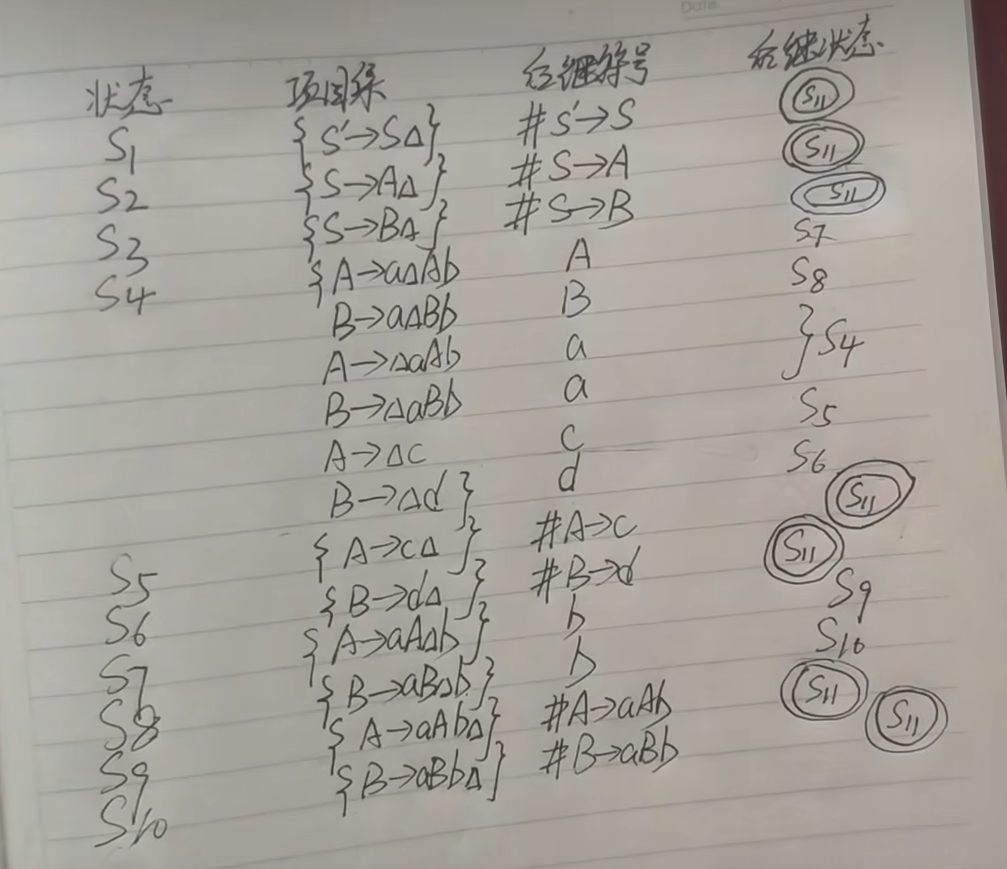 Date
状态 项目集 后继符号 后继状态
S₁ {S'→SΔ} #S'→S S₁₁
S₂ {S→AΔ} #S→A S₁₁
S₃ {S→BΔ} #S→B S₁₁
S₄ {A→aΔAb A S₇
B→aΔBb B S₈
A→ΔaAb a }S₄
B→ΔaBb a
A→Δc c S₅
B→Δd} d S₆
S₅ {A→cΔ} #A→c S₁₁
S₆ {B→dΔ} #B→d S₁₁
S₇ {A→aAΔb} b S₉
S₈ {B→aBΔb} b S₁₀
S₉ {A→aAbΔ} #A→aAb S₁₁
S₁₀ {B→aBbΔ} #B→aBb S₁₁